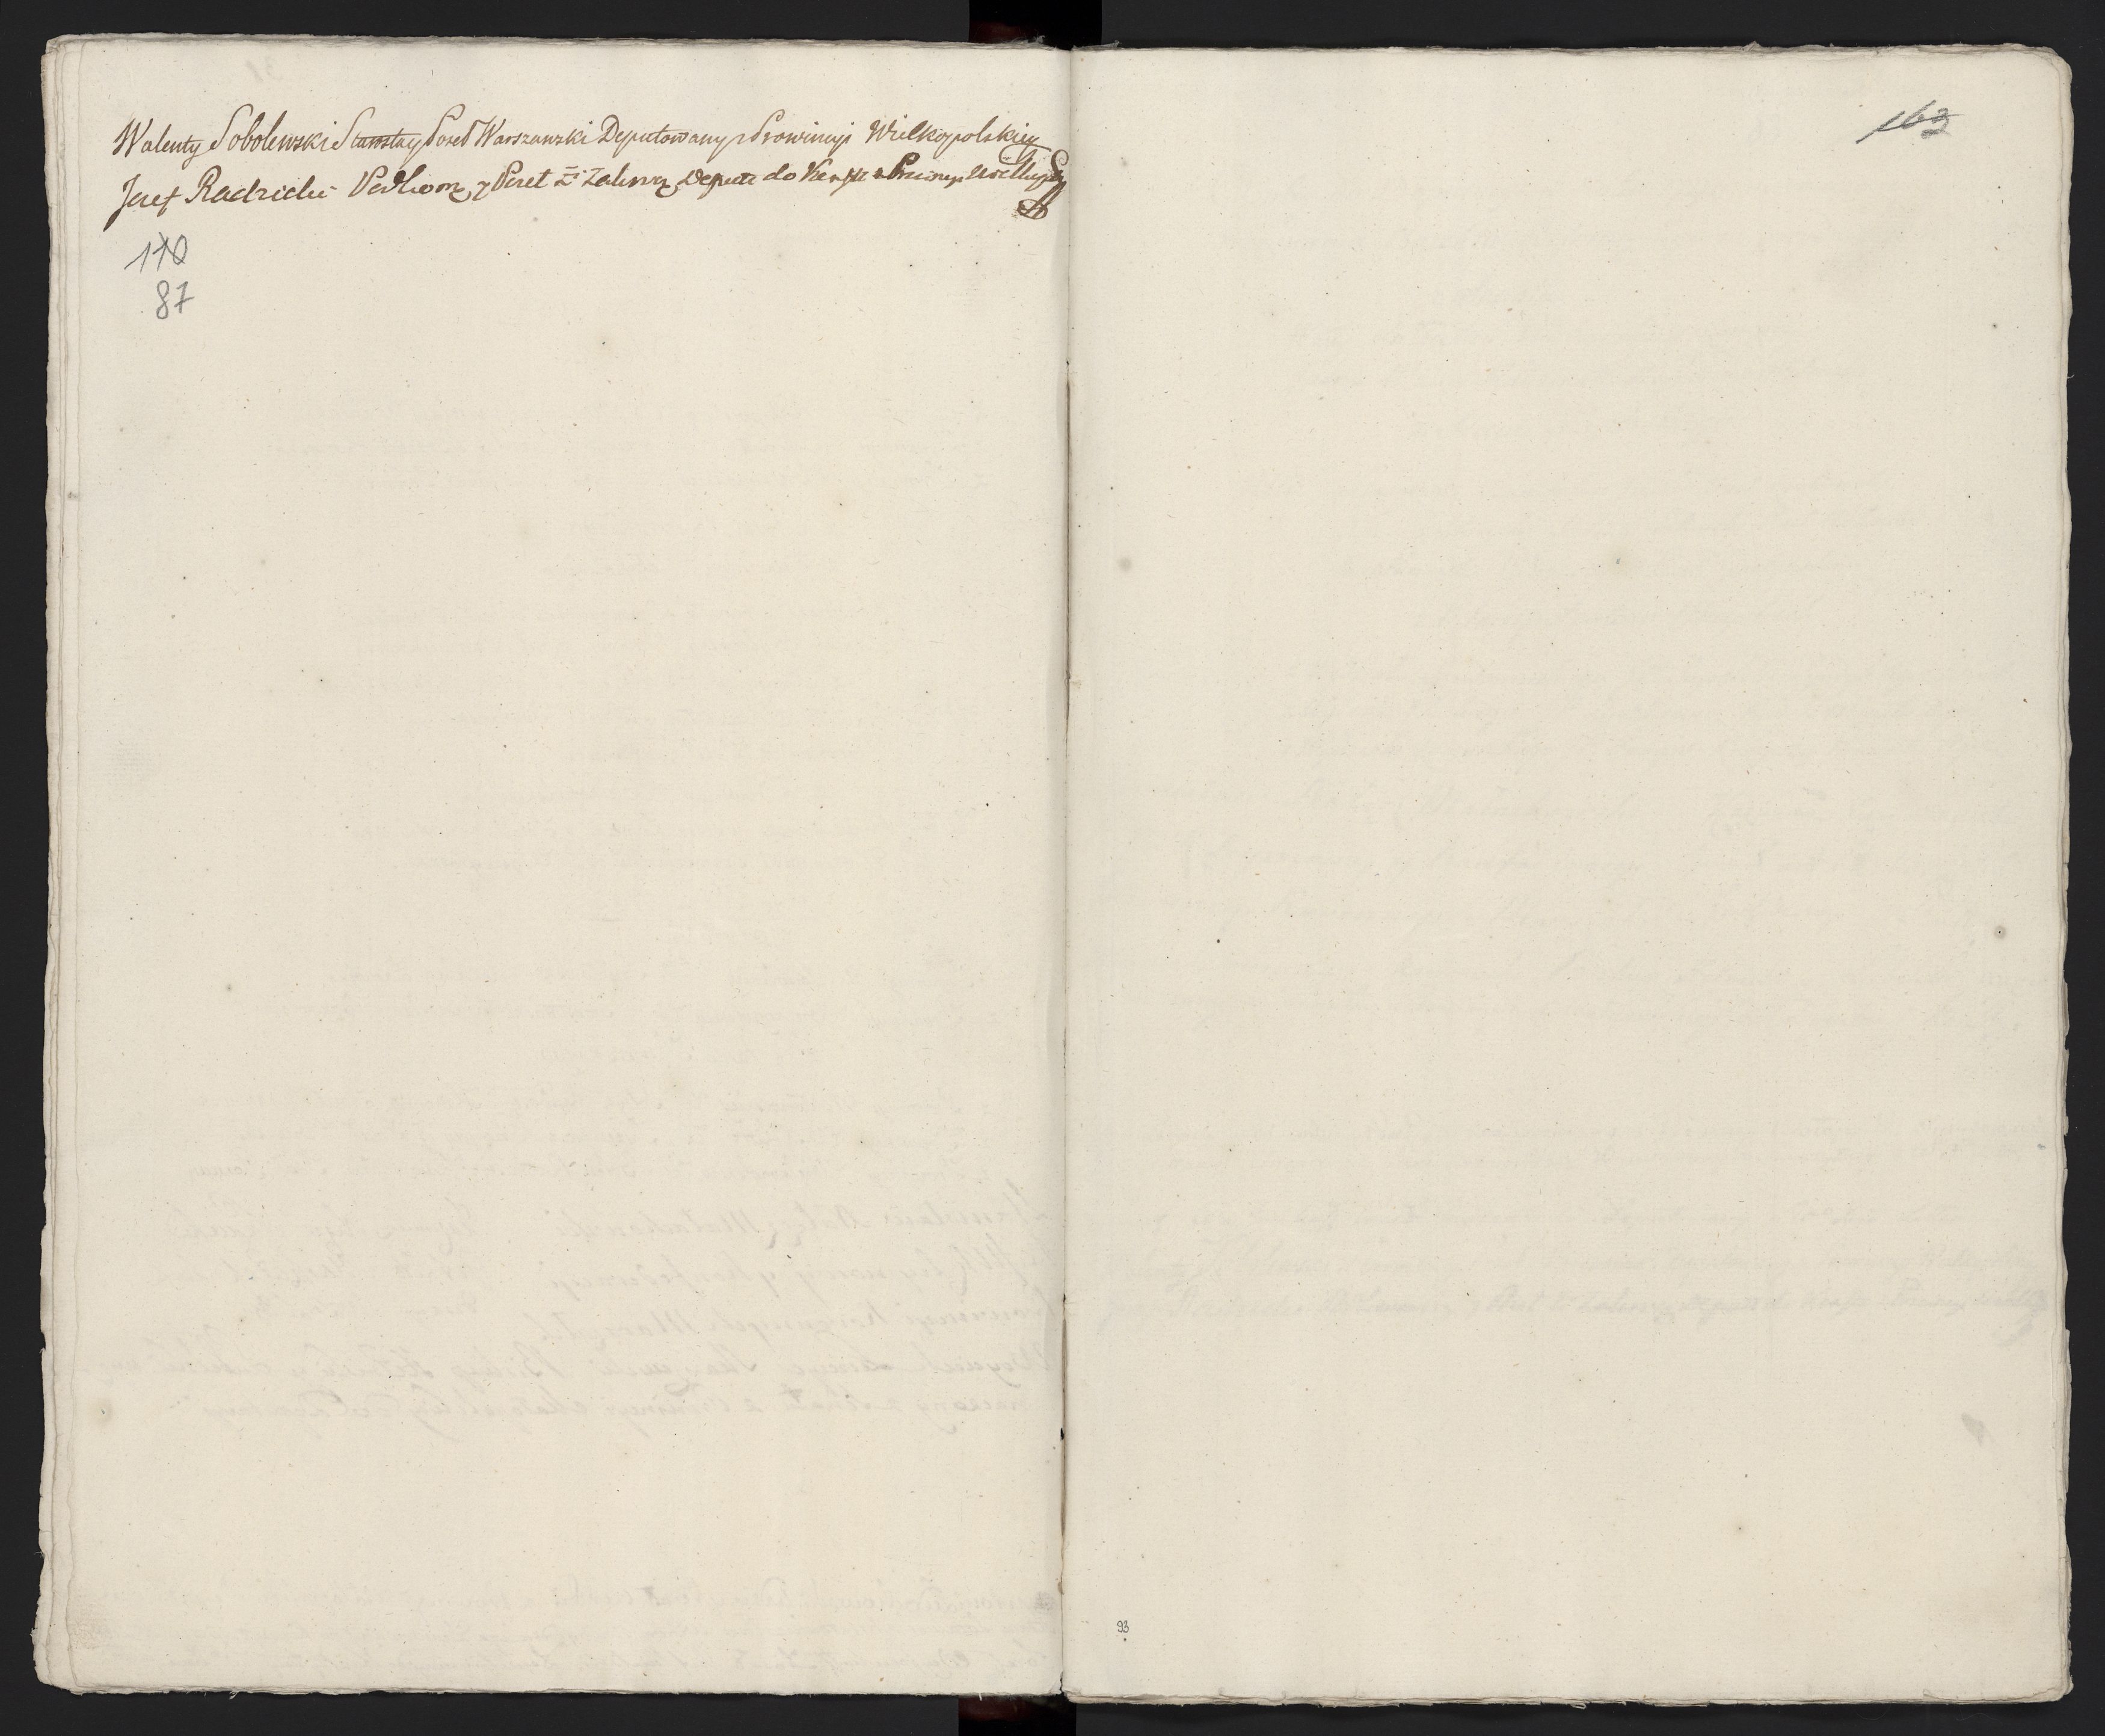 Walenty Sobolewski Starosta y Poseł Warszawski Deputowany z Prowincyi Wielkopolskiey
Jozef Radzicki Podkom y Poseł Zi Zakrocz Deput do Konstt z Prowincyi Wielkopol
110
87
163
93